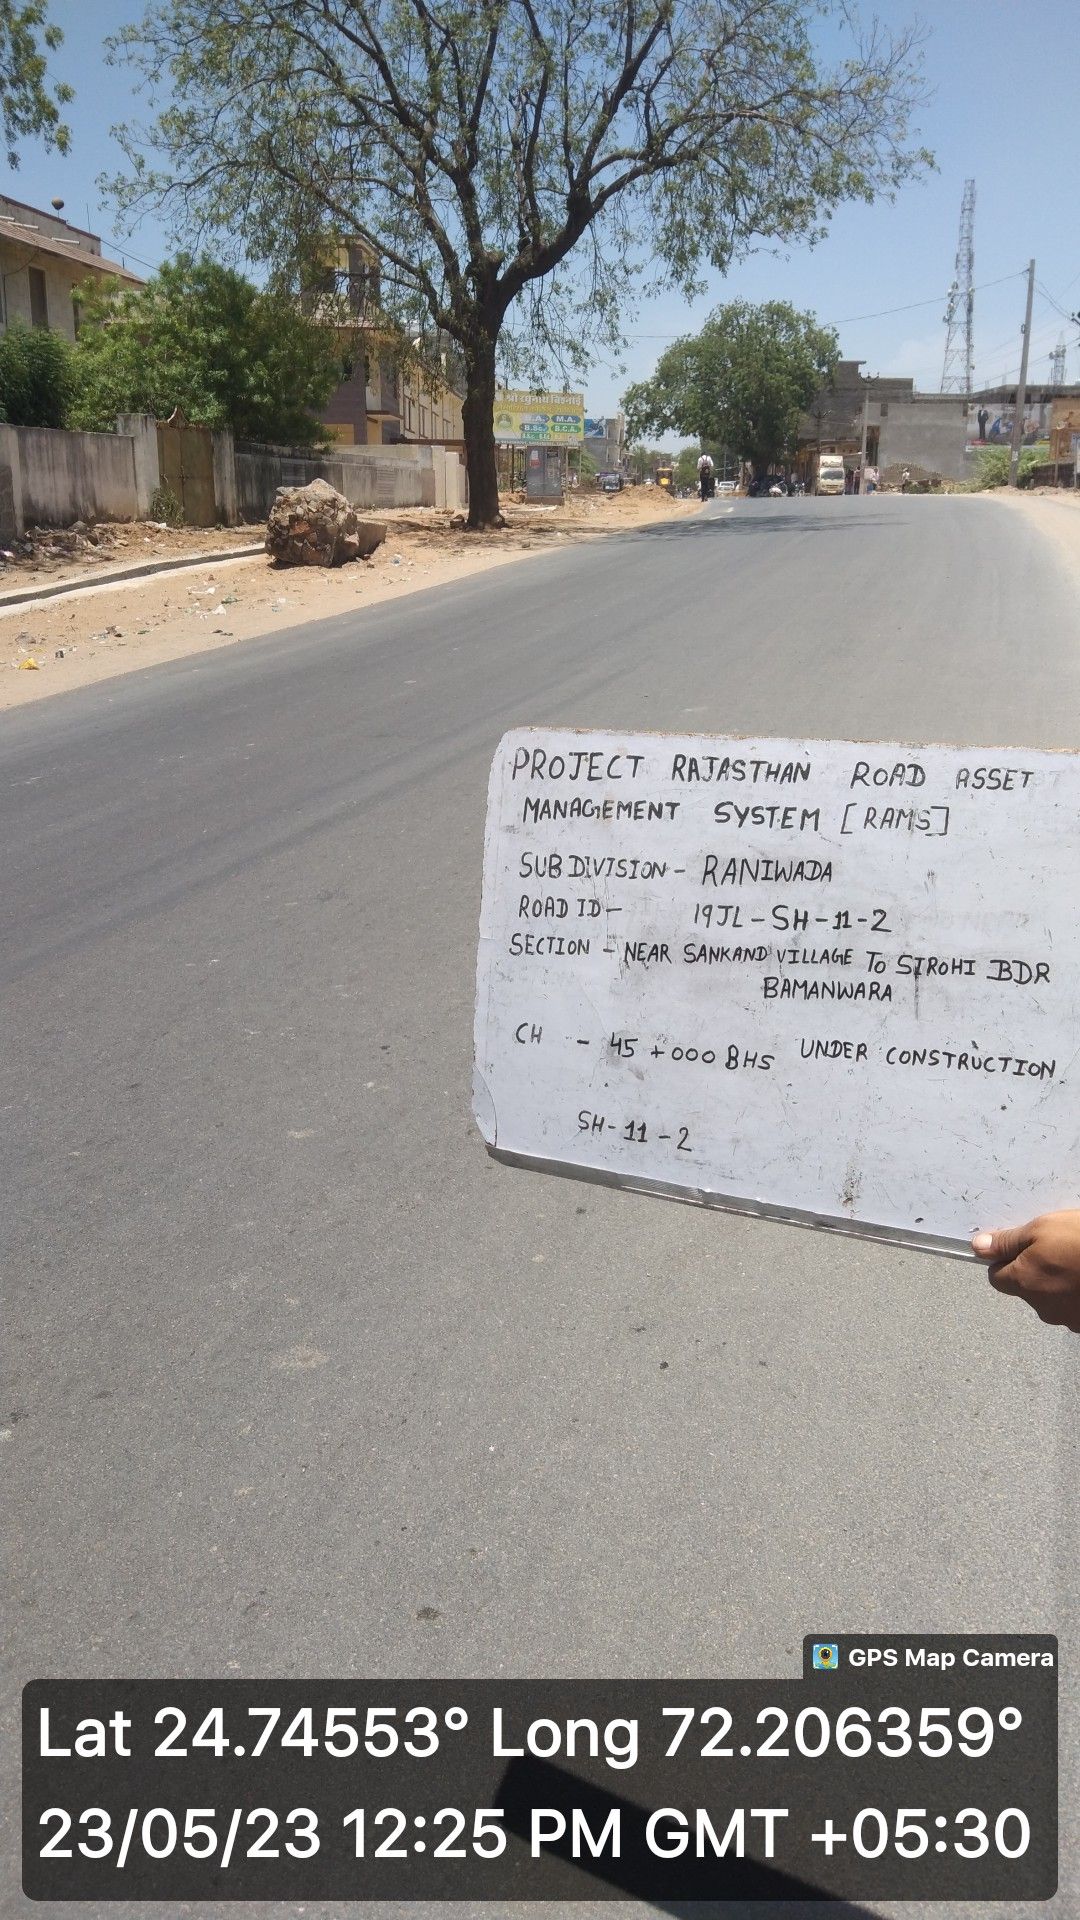 श्री रघुनाथ बिश्नोई
B.A.
M.A.
B.Sc.
B.C.A.
PROJECT RAJASTHAN ROAD ASSET
MANAGEMENT SYSTEM [RAMS]
SUBDIVISION - RANIWADA
ROAD ID - 19JL-SH-11-2
SECTION - NEAR SANKAND VILLAGE TO SIROHI BDR
BAMANWARA
CH - 45+000 BHS UNDER CONSTRUCTION
SH-11-2
GPS Map Camera
Lat 24.74553° Long 72.206359°
23/05/23 12:25 PM GMT +05:30